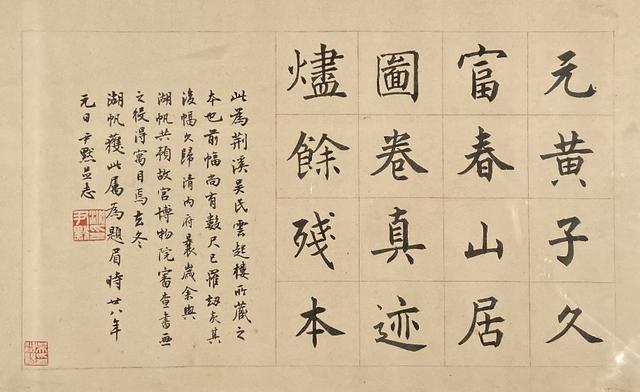 元黃子久
富春山居
圖卷真迹
燼餘殘本
此為荆溪吴氏雲起樓所藏之
本也前幅尚有數尺已罹劫灰其
後幅久歸清内府曩歲余與
湖帆共預故宮博物院審查書画
之役得寓目焉去冬
湖帆獲此属為題眉時廿八年
元日尹默並志